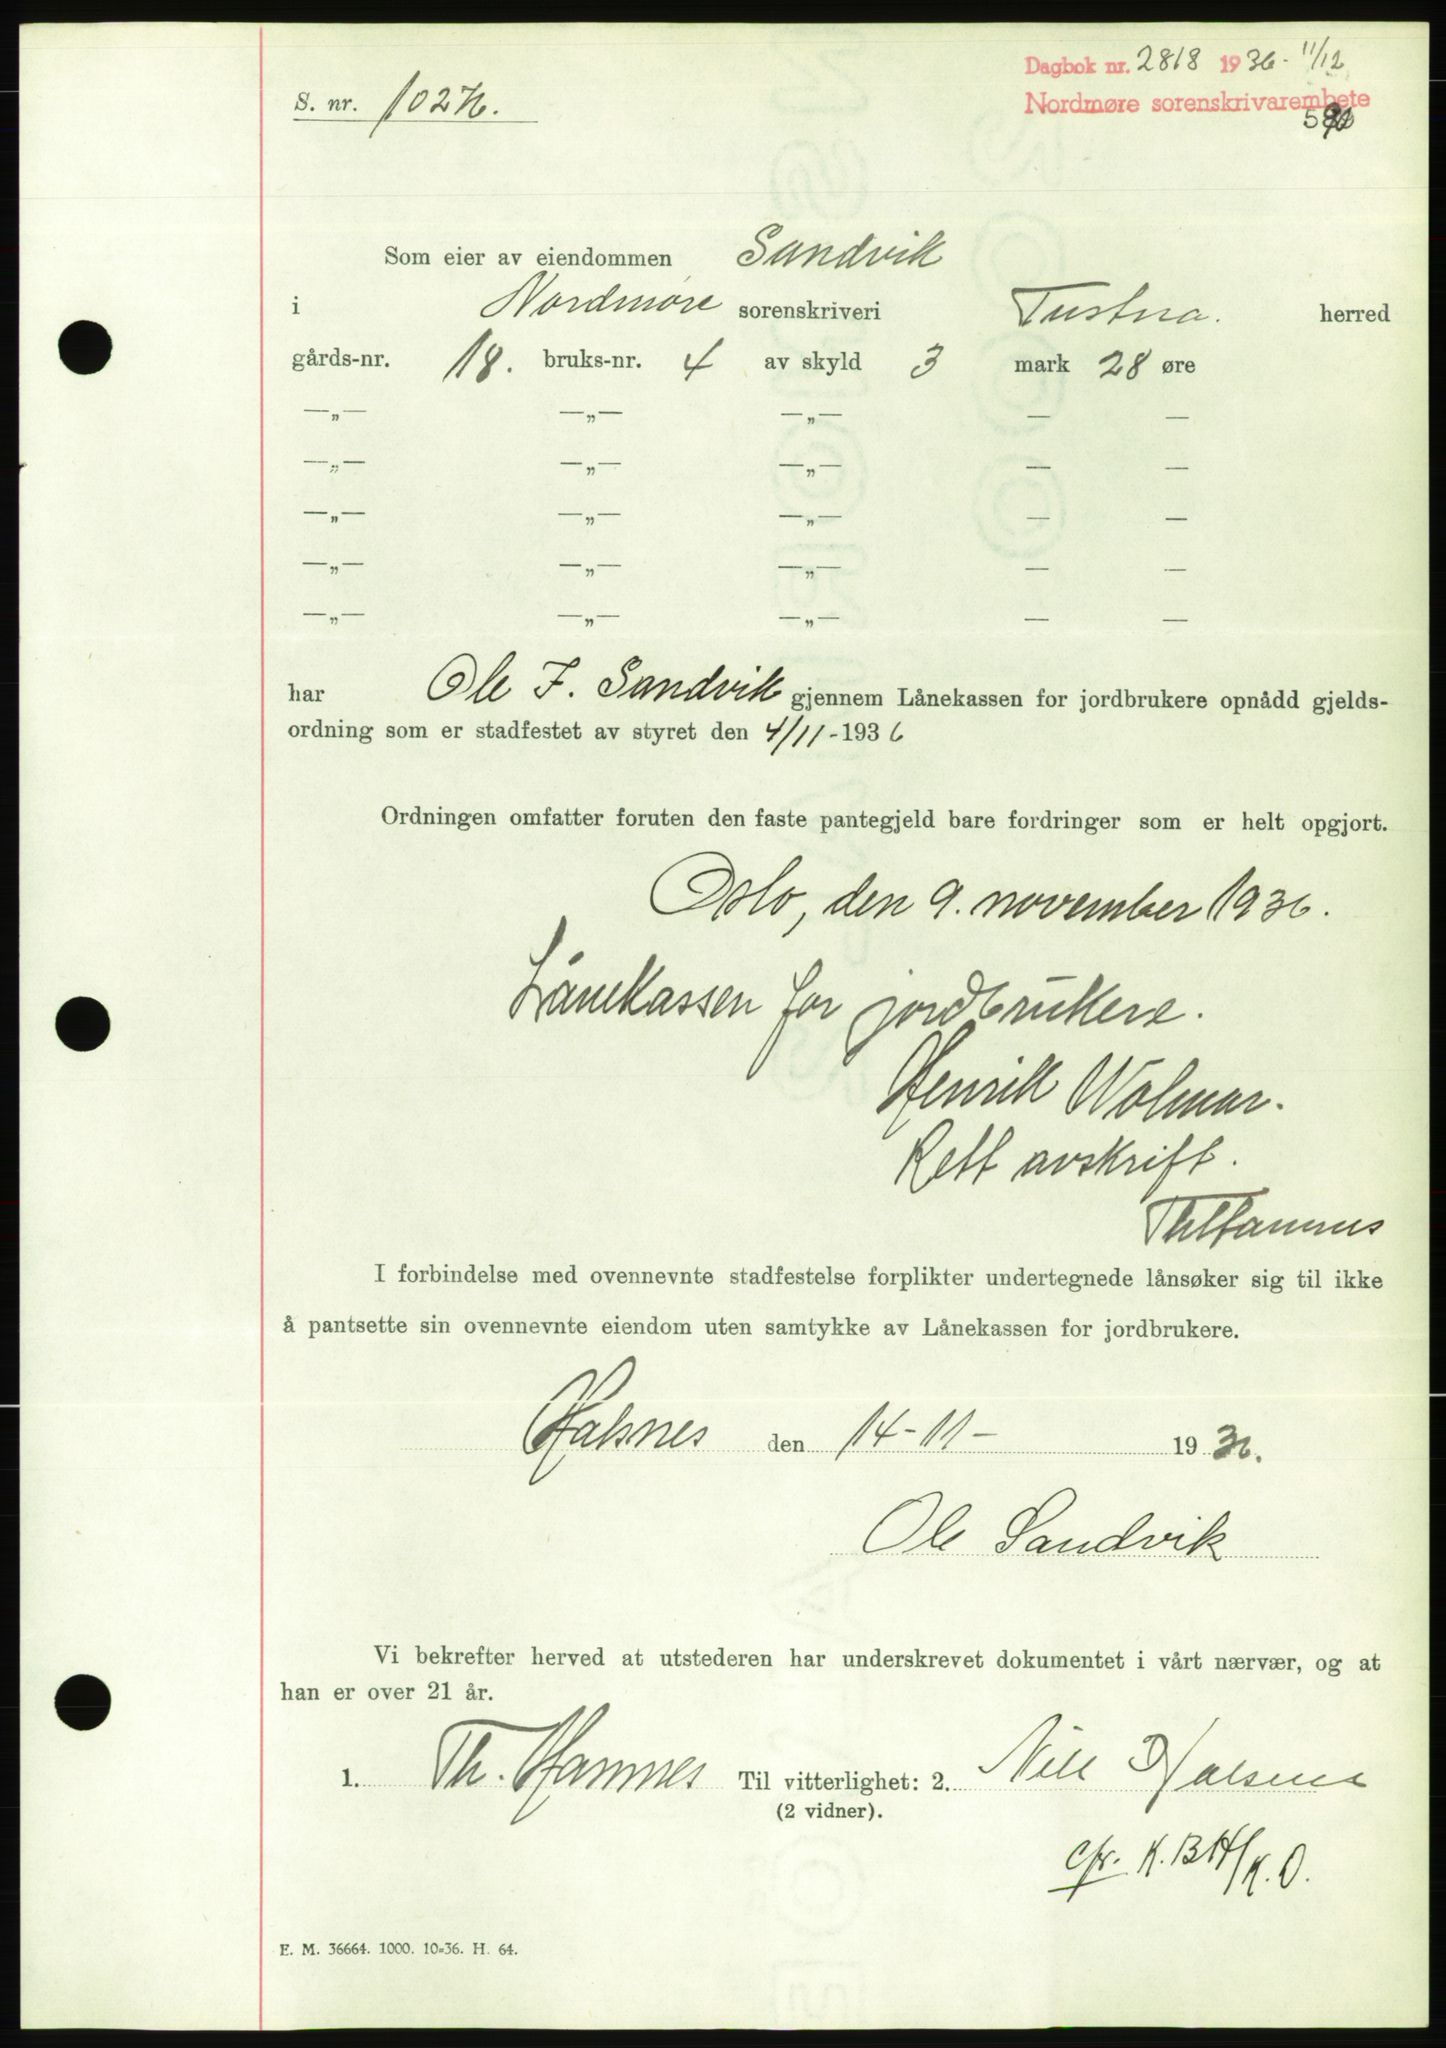 Dagbok nr. 2818 1936 - 11/12
Nordmøre sorenskrivarembete
S. nr.
Som eier av eiendommen Sandvik
i Nordmøre sorenskriveri Tustna. herred
gårds-nr. 18. bruks-nr. 4 av skyld 3 mark 28 øre
—„— —„— —„— — —
—„— —„— —„— — —
—„— —„— —„— — —
—„— —„— —„— — —
—„— —„— —„— — —
har Ole F. Sandvik gjennem Lånekassen for jordbrukere opnådd gjelds-
ordning som er stadfestet av styret den 4/11-1936
Ordningen omfatter foruten den faste pantegjeld bare fordringer som er helt opgjort.
Oslo, den 9. november 1936.
Lånekassen for jordbrukere.
Henrik Wolmar.
Rett avskrift.
Th Hamnes
I forbindelse med ovennevnte stadfestelse forplikter undertegnede lånsøker sig til ikke
å pantsette sin ovennevnte eiendom uten samtykke av Lånekassen for jordbrukere.
Halsnes den 14-11- 1936.
Ole Sandvik
Vi bekrefter herved at utstederen har underskrevet dokumentet i vårt nærvær, og at
han er over 21 år.
1. Th. Hamnes Til vitterlighet: 2. Halsnes
(2 vidner).
cfr. K. BH/K.O.
E. M. 36664. 1000. 10-36. H. 64.